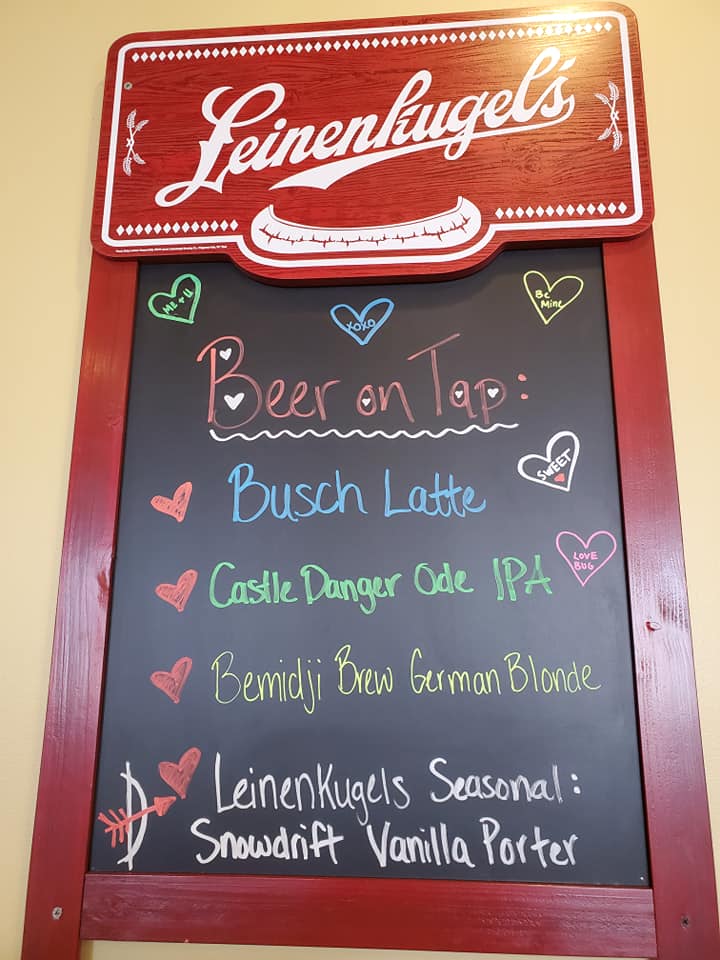 Leinenkugel's
ME + U
XOXO
Be
Mine
Beer on Tap:
SWEET
Busch Latte
LOVE
BUG
Castle Danger Ode IPA
Bemidji Brew German Blonde
Leinenkugels Seasonal:
Snowdrift Vanilla Porter